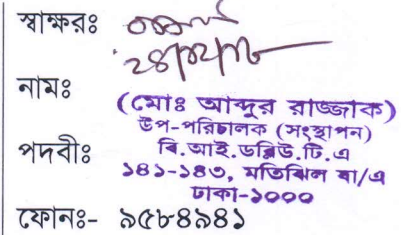 স্বাক্ষরঃ
নামঃ
(মোঃ আব্দুর রাজ্জাক)
উপ-পরিচালক (সংস্থাপন)
পদবীঃ
বি.আই.ডব্লিউ.টি.এ
১৪১-১৪৩, মতিঝিল বা/এ
ঢাকা-১০০০
ফোনঃ- ৯৫৮৪৯৪১